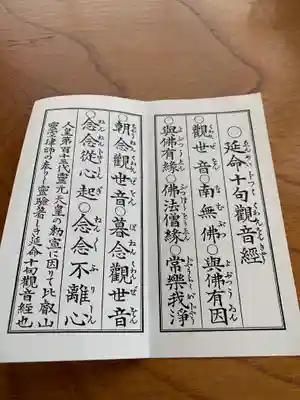 ○延命十句觀音經
觀世音南無佛○與佛有因
○與佛有緣○佛法僧緣○常樂我淨
○朝念觀世音○暮念觀世音
○念念從心起○念念不離心
人皇第百十代靈元天皇の勅宣に因りて比叡山
靈空律師の奉りし靈驗著しき延命十句觀音經也